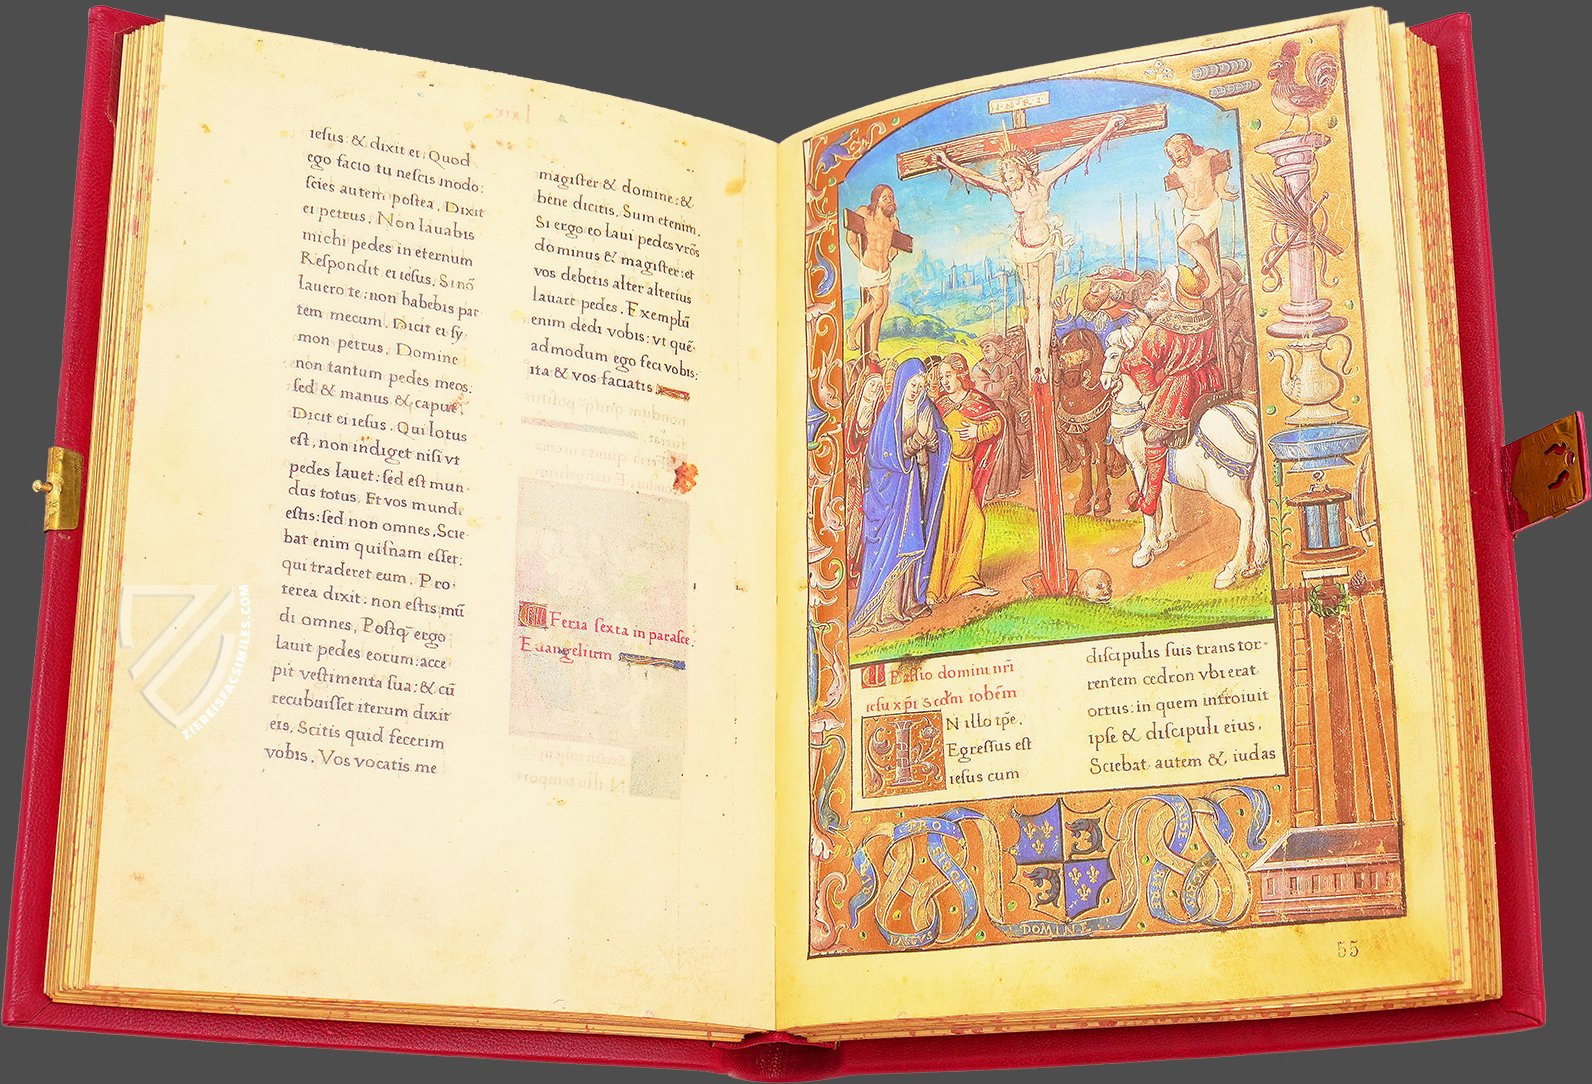 iesus & dixit ei, Quod
ego facio tu nescis modo:
scies autem postea. Dixit
ei petrus, Non lauabis
michi pedes in eternum
Respondit ei iesus, Sinō
lauero te: non habebis par
tem mecum. Dicit ei sy-
mon petrus, Domine
non tantum pedes meos:
sed & manus & caput.
Dicit ei iesus. Qui lotus
est, non indiget nisi vt
pedes lauet: sed est mun-
dus totus, Et vos mundi
estis: sed non omnes, Scie-
bat enim quisnam esset:
qui traderet eum, Pro-
terea dixit: non estis mū
di omnes, Postq̃ ergo
lauit pedes eorum: acce
pit vestimenta sua: & cū
recubuisset iterum dixit
eis, Scitis quid fecerim
vobis, Vos vocatis me
magister & domine: &
bene dicitis, Sum etenim,
Si ergo eo laui pedes vr̄os
dominus & magister: et
vos debetis alter alterius
lauare pedes. Exemplū
enim dedi vobis: vt quē-
admodum ego feci vobis:
ita & vos faciatis
Feria sexta in parasce.
Euangelium
I·N·R·I
Passio domini nr̄i
iesu xp̄i scd̄m iohēm
IN illo tp̄e,
Egressus est
iesus cum
discipulis suis trans tor-
rentem cedron vbi erat
ortus: in quem introiuit
ipse & discipuli eius,
Sciebat autem & iudas
PRO
DOMINE
55
ZIEREISFACSIMILES.COM